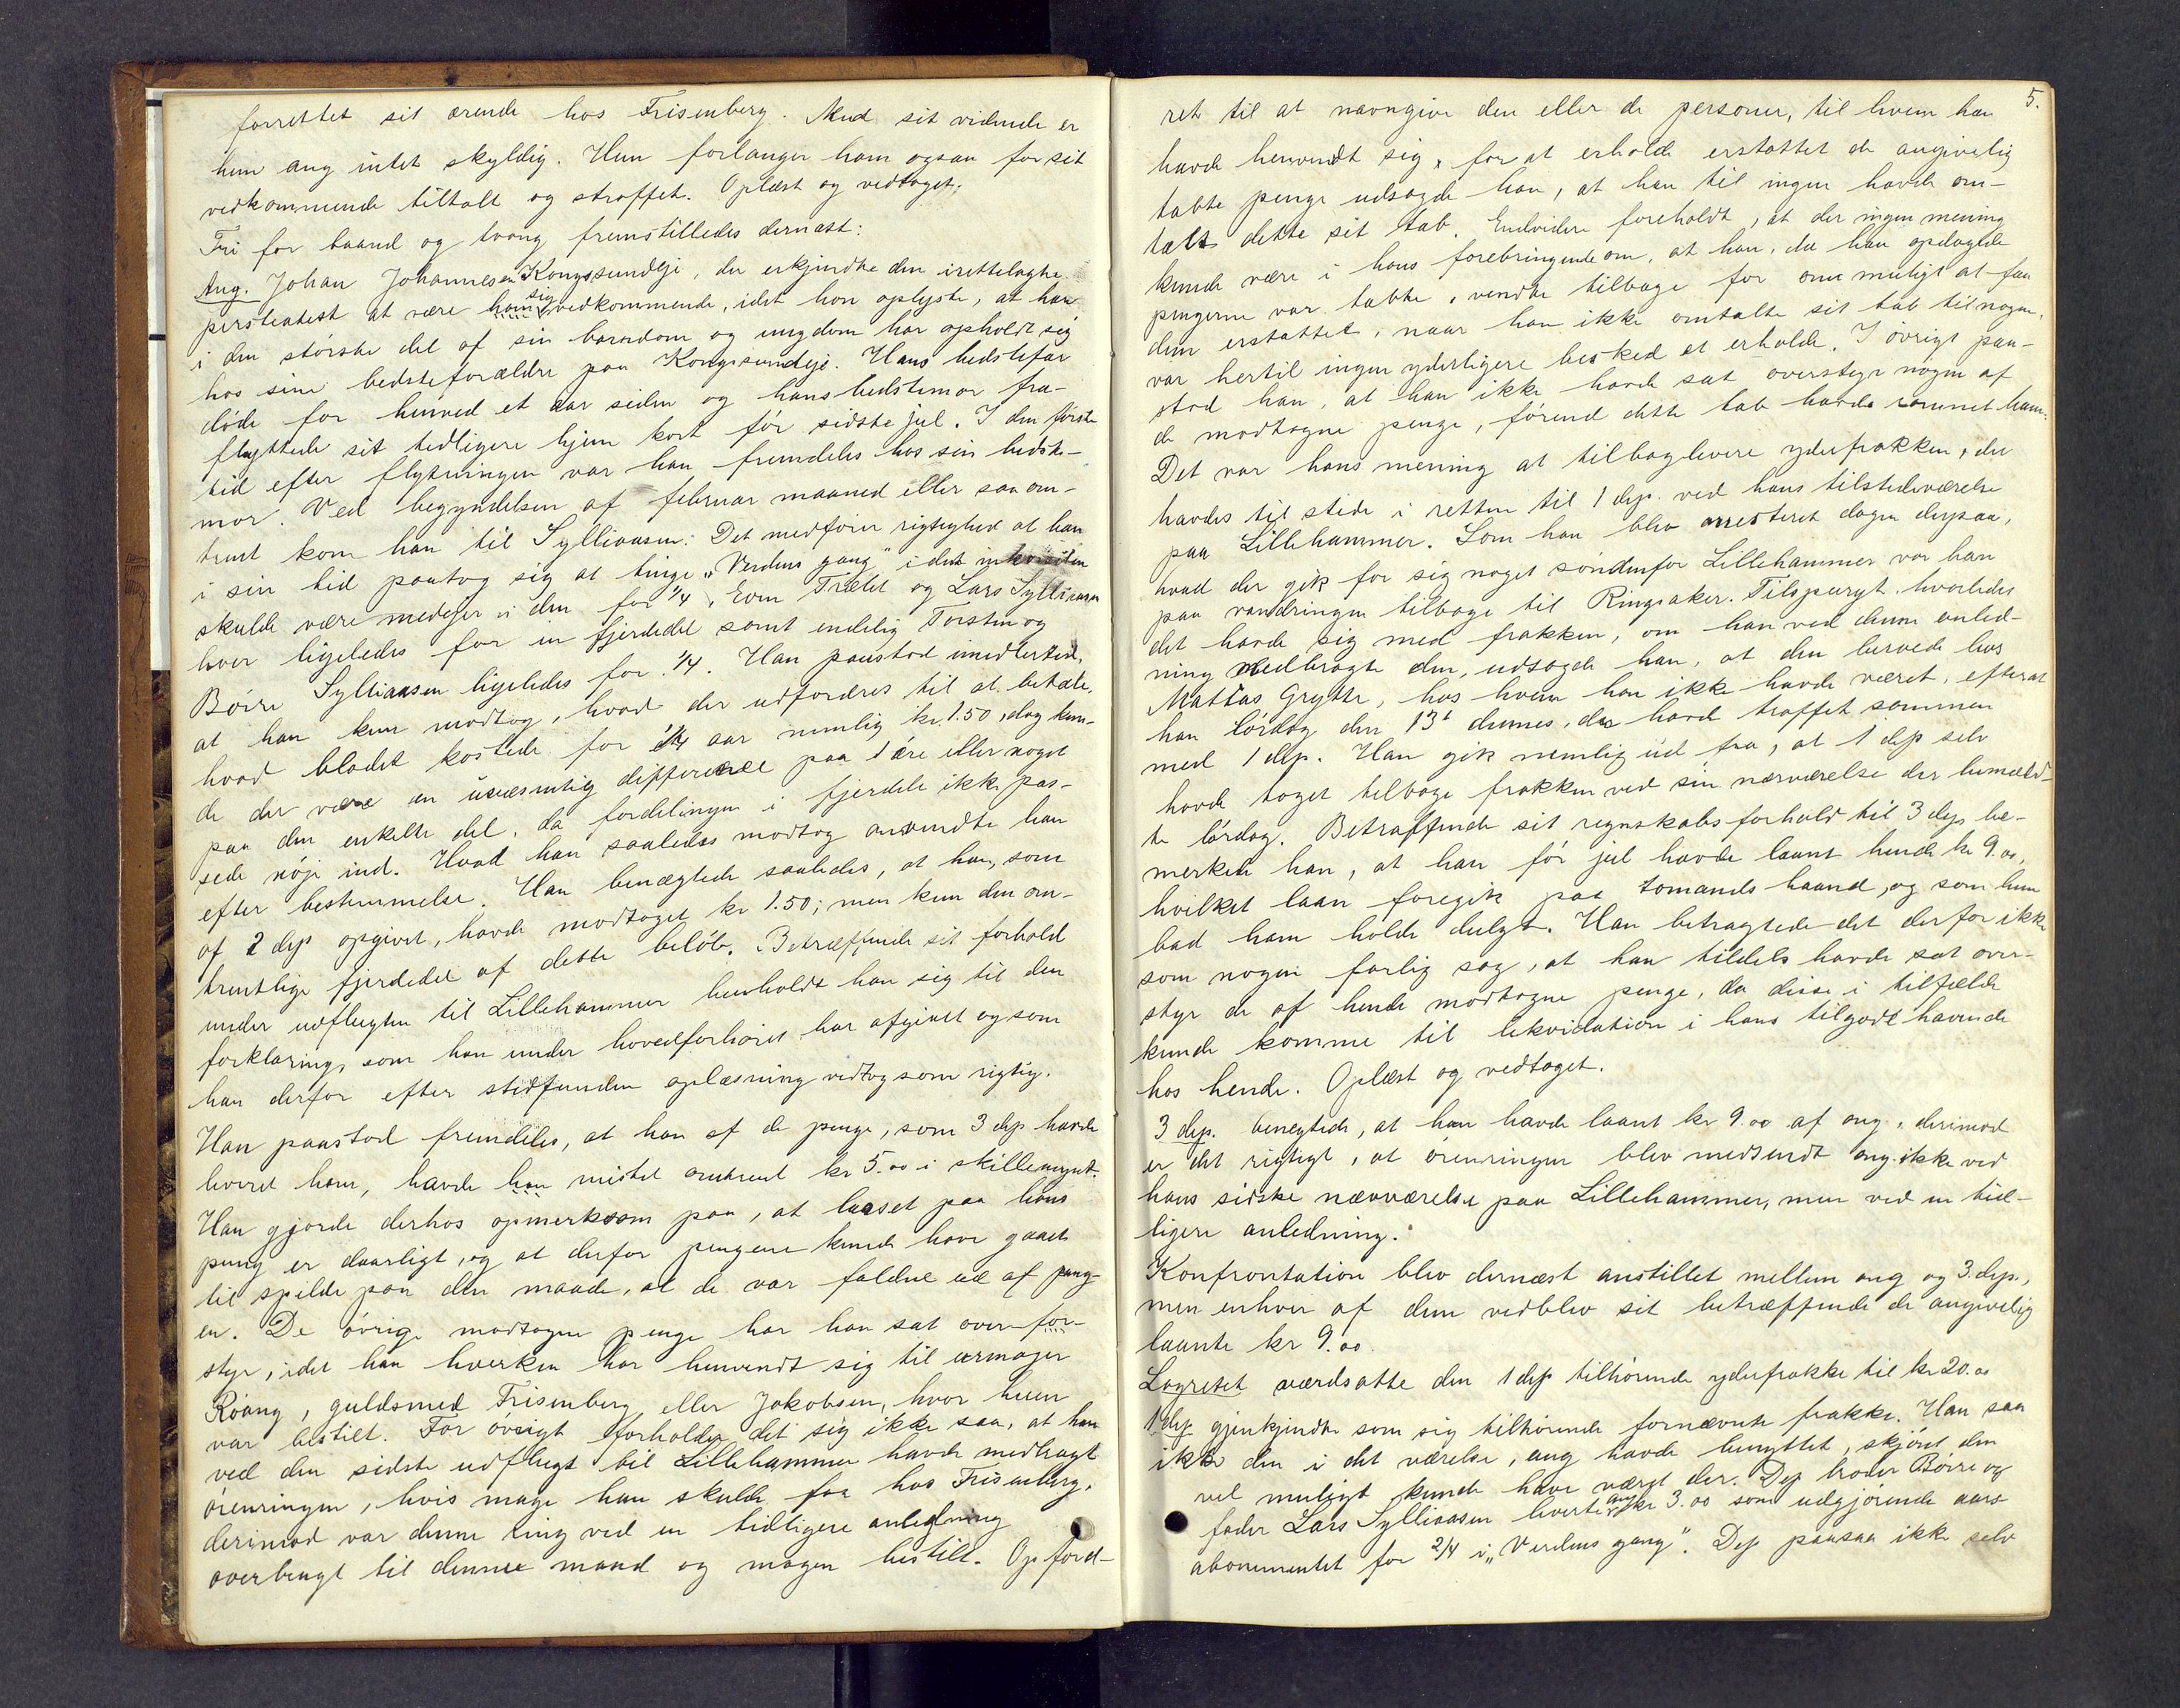 forrettet sit ærende hos Frisenberg. Med sit vidende er
hun ang intet skyldig. Hun forlanger ham ogsaa for sit
vedkommende tiltalt og straffet. Oplæst og vedtaget.
Fri for baand og tvang fremstilledes dernæst:
Ang. Johan Johannesen Kongssundeje, der erkjendte den irettelagte
persteatest at være ham sig vedkommende, idet han oplyste, at han
i den største del af sin barndom og ungdom har opholdt sig
hos sine bedsteforældre paa Kongssundeje. Hans bedstefar
døde for henved et aar siden og hans bedstemor fra-
flyttede sit tidligere hjem kort før sidste jul. I den første
tid efter flytningen var han fremdeles hos sin bedste-
mor. Ved begyndelsen af februar maaned eller saa om-
trent kom han til Sylliaasen. Det medfører rigtighed at han
i sin tid paatog sig at tinge „Verdens gang" idet
skulde være medejer i den for 1/4, Even Trætet og Lars Sylliaasen
hver ligeledes for en fjerdedel samt endelig Torsten og
Børre Sylliaasen ligeledes for 1/4. Han paastod imidlertid,
at han kun modtog, hvad der udfordres til at betale,
hvad bladet kostede for 1/4 aar nemlig kr. 1.50, dog kun-
de der være en uvæsentlig difference paa 1 øre eller noget
paa den enkelte del, da fordelingen i fjerdele ikke pas-
sede nøje ind. Hvad han saaledes modtog anvendte han
efter bestemmelse. Han benægtede saaledes, at han, som
af 2 dep opgivet, havde modtaget kr 1.50; men kun den om-
trentlige fjerdedel af dette beløb. Betræffende sit forhold
under udflugten til Lillehammer henholdt han sig til den
forklaring, som han under hovedforhøret har afgivet og som
han derfor efter stedfunden oplæsning vedtog som rigtig.
Han paastod fremdeles, at han af de penge, som 3 dep havde
leveret ham, havde han mistet omtrent kr 5.00 i skillemynt.
Han gjorde derhos opmerksom paa, at laaset paa hans
pung er daarligt, og at derfor pengene kunde have gaaet
til spilde paa den maade, at de var faldne ud af pung-
en. De øvrige modtagne penge har han sat over for-
styr, idet han hverken har henvendt sig til urmager
Røang, guldsmed Frisenberg eller Jakobsen, hvor huen
var bestilt. For øvrigt forholder det sig ikke saa, at han
ved den sidste udflugt til Lillehammer havde medbragt
ørenringen, hvis mage han skulde faa hos Frisenberg,
derimod var denne ring ved en tidligere anledning
overbragt til denne mand og magen bestilt. Opford-
5.
ret til at navngive den eller de personer, til hvem han
havde henvendt sig, for at erholde erstattet de angivelig
tabte penge udsagde han, at han til ingen havde om-
talt dette sit tab. Endvidere foreholdt, at der ingen mening
kunde være i hans forebringende om, at han, da han opdagede
pengerne var tabte, vendte tilbage for om muligt at faa
dem erstattet, naar han ikke omtalte sit tab til nogen,
var hertil ingen yderligere besked at erholde. I øvrigt paa-
stod han, at han ikke havde sat overstyr nogen af
de modtagne penge, førend dette tab havde rammet ham.
Det var hans mening at tilbagelevere yderfrakken, der
havdes til stede i retten til 1 dep. ved hans tilstedeværelse
paa Lillehammer. Som han blev arresteret dagen derpaa,
hvad der gik for sig noget søndenfor Lillehammer var han
paa vandringen tilbage til Ringsaker. Tilspurgt hvorledes
det havde sig med frakken, om han ved denne anled-
ning medbragte den, udsagde han, at den beroede hos
Mattas Grytte, hos hvem han ikke havde været, efterat
han lørdag den 13de dennes, da havde truffet sammen
med 1 dep. Han gik nemlig ud fra, at 1 dep selv
havde taget tilbage frakken ved sin nærværelse der bemeld-
te lørdag. Betræffende sit regnskabsforhold til 3 dep be-
merkede han, at han før jul havde laant hende kr 9.00,
hvilket laan foregik paa tomands haand, og som hun
bad ham holde dulgt. Han betragtede det derfor ikke
som nogen farlig sag, at han tildels havde sat over-
styr de af hende modtagne penge, da disse i tilfælde
kunde komme til likvidation i hans tilgodehavende
hos hende. Oplæst og vedtaget.
3 dep. benegtede, at hun havde laant kr 9.00 af ang, derimod
er det rigtigt, at ørenringen blev medsendt ang. ikke ved
hans sidste nærværelse paa Lillehammer, men ved en tid-
ligere anledning.
Konfrontation blev dernæst anstillet mellem ang og 3. dep.,
men enhver af dem vedblev sit betræffende de angivelig
laante kr 9.00.
Lagretet værdsatte den 1 dep tilhørende yderfrakke til kr 20.00
1. dep gjenkjendte som sig tilhørende fornævnte frakke. Han saa
ikke den i det værelse, ang havde benyttet, skjønt den
vel muligt kunde have været der. Dep broder Børre og
fader Lars Sylliaasen leverte ang kr 3.00 som udgjørende aars-
abonnementet for 2/4 i „Verdens gang". Dep paasaa ikke selv